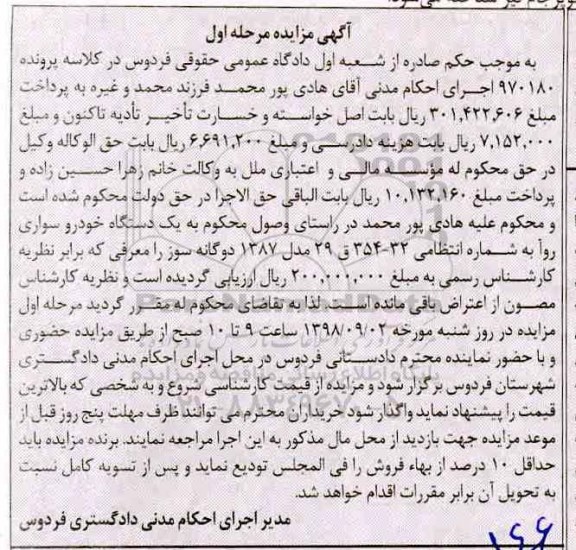 آگهی مزایده مرحله اول
به موجب حکم صادره از شعبه اول دادگاه عمومی حقوقی فردوس در کلاسه پرونده
۹۷۰۱۸۰ اجرای احکام مدنی آقای هادی پور محمد فرزند محمد و غیره به پرداخت
مبلغ ۳۰۱,۴۲۲,۶۰۶ ریال بابت اصل خواسته و خسارت تأخیر تأدیه تاکنون و مبلغ
۷,۱۵۲,۰۰۰ ریال بابت هزینه دادرسی و مبلغ ۶,۶۹۱,۲۰۰ ریال بابت حق الوکاله وکیل
در حق محکوم له مؤسسه مالی و اعتباری ملل به وکالت خانم زهرا حسین زاده و
پرداخت مبلغ ۱۰,۱۳۲,۱۶۰ ریال بابت الباقی حق الاجرا در حق دولت محکوم شده است
و محکوم علیه هادی پور محمد در راستای وصول محکوم به یک دستگاه خودرو سواری
روآ به شماره انتظامی ۳۲-۳۵۴ ق ۲۹ مدل ۱۳۸۷ دوگانه سوز را معرفی که برابر نظریه
کارشناس رسمی به مبلغ ۲۰۰,۰۰۰,۰۰۰ ریال ارزیابی گردیده است و نظریه کارشناس
مصون از اعتراض باقی مانده است. لذا به تقاضای محکوم له مقرر گردید مرحله اول
مزایده در روز شنبه مورخه ۱۳۹۸/۰۹/۰۲ ساعت ۹ تا ۱۰ صبح از طریق مزایده حضوری
و با حضور نماینده محترم دادستانی فردوس در محل اجرای احکام مدنی دادگستری
شهرستان فردوس برگزار شود و مزایده از قیمت کارشناسی شروع و به شخصی که بالاترین
قیمت را پیشنهاد نماید واگذار شود خریداران محترم می توانند ظرف مهلت پنج روز قبل از
موعد مزایده جهت بازدید از محل مال مذکور به این اجرا مراجعه نمایند. برنده مزایده باید
حداقل ۱۰ درصد از بهاء فروش را فی المجلس تودیع نماید و پس از تسویه کامل نسبت
به تحویل آن برابر مقررات اقدام خواهد شد.
مدیر اجرای احکام مدنی دادگستری فردوس
۱۶۶